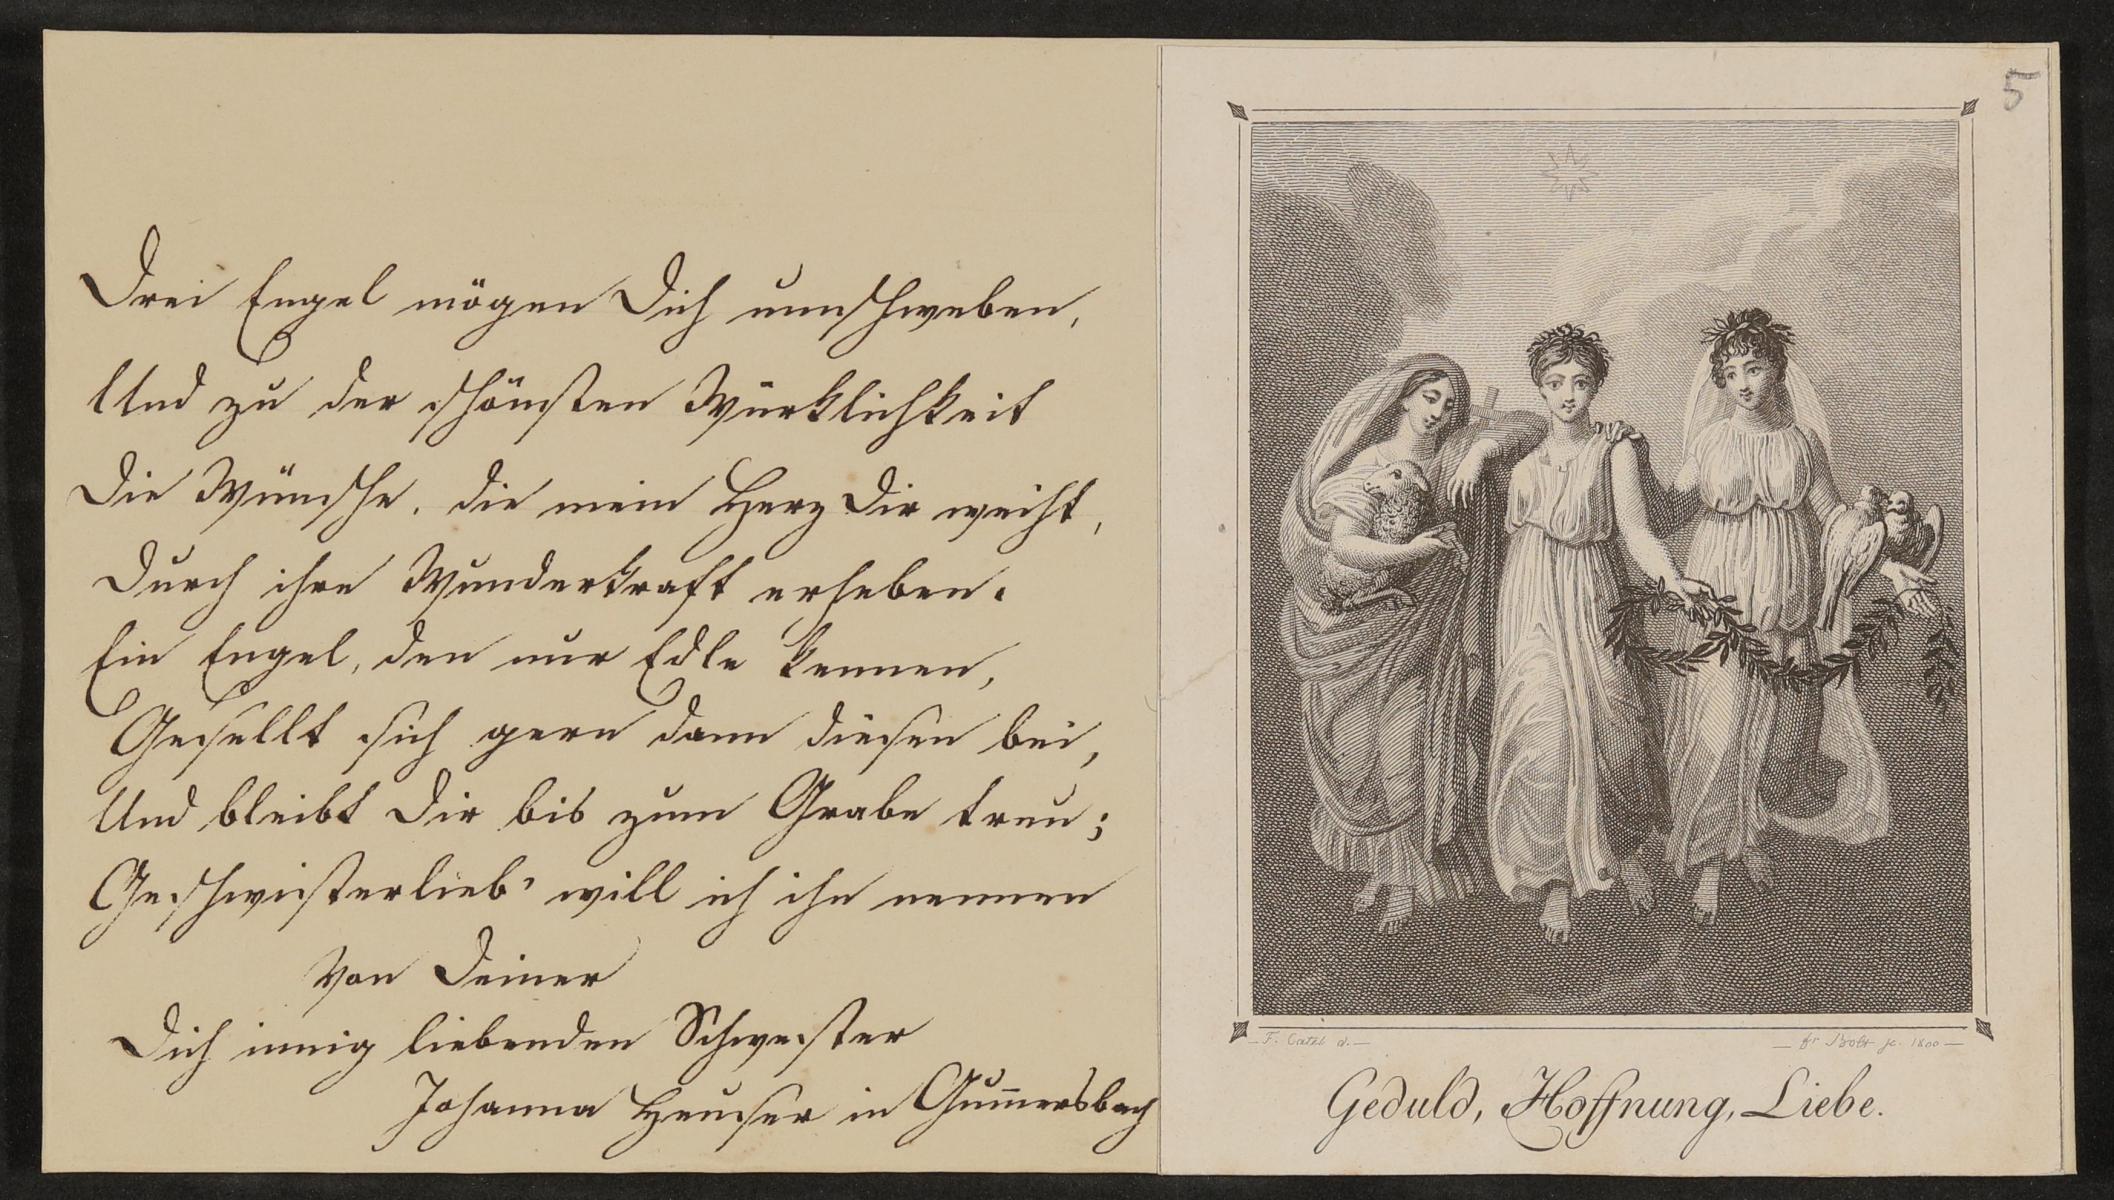 Drei Engel mögen Dich umschweben,
Und zu der schönsten Würklichkeit
Die Wünsche, die mein Herz Dir weiht,
Durch ihre Wunderkraft erheben.
Ein Engel, den nur Edle kennen,
Gesellt sich gern dann diesen bei,
Und bleibt Dir bis zum Grabe treu;
Geschwisterlieb' will ich ihn nennen
Von Deiner
Dich innig liebenden Schwester
Johanna Heuser in Gum̅ersbach
5
F. Catel d.
fr Bolt sc. 1800
Geduld, Hoffnung, Liebe.